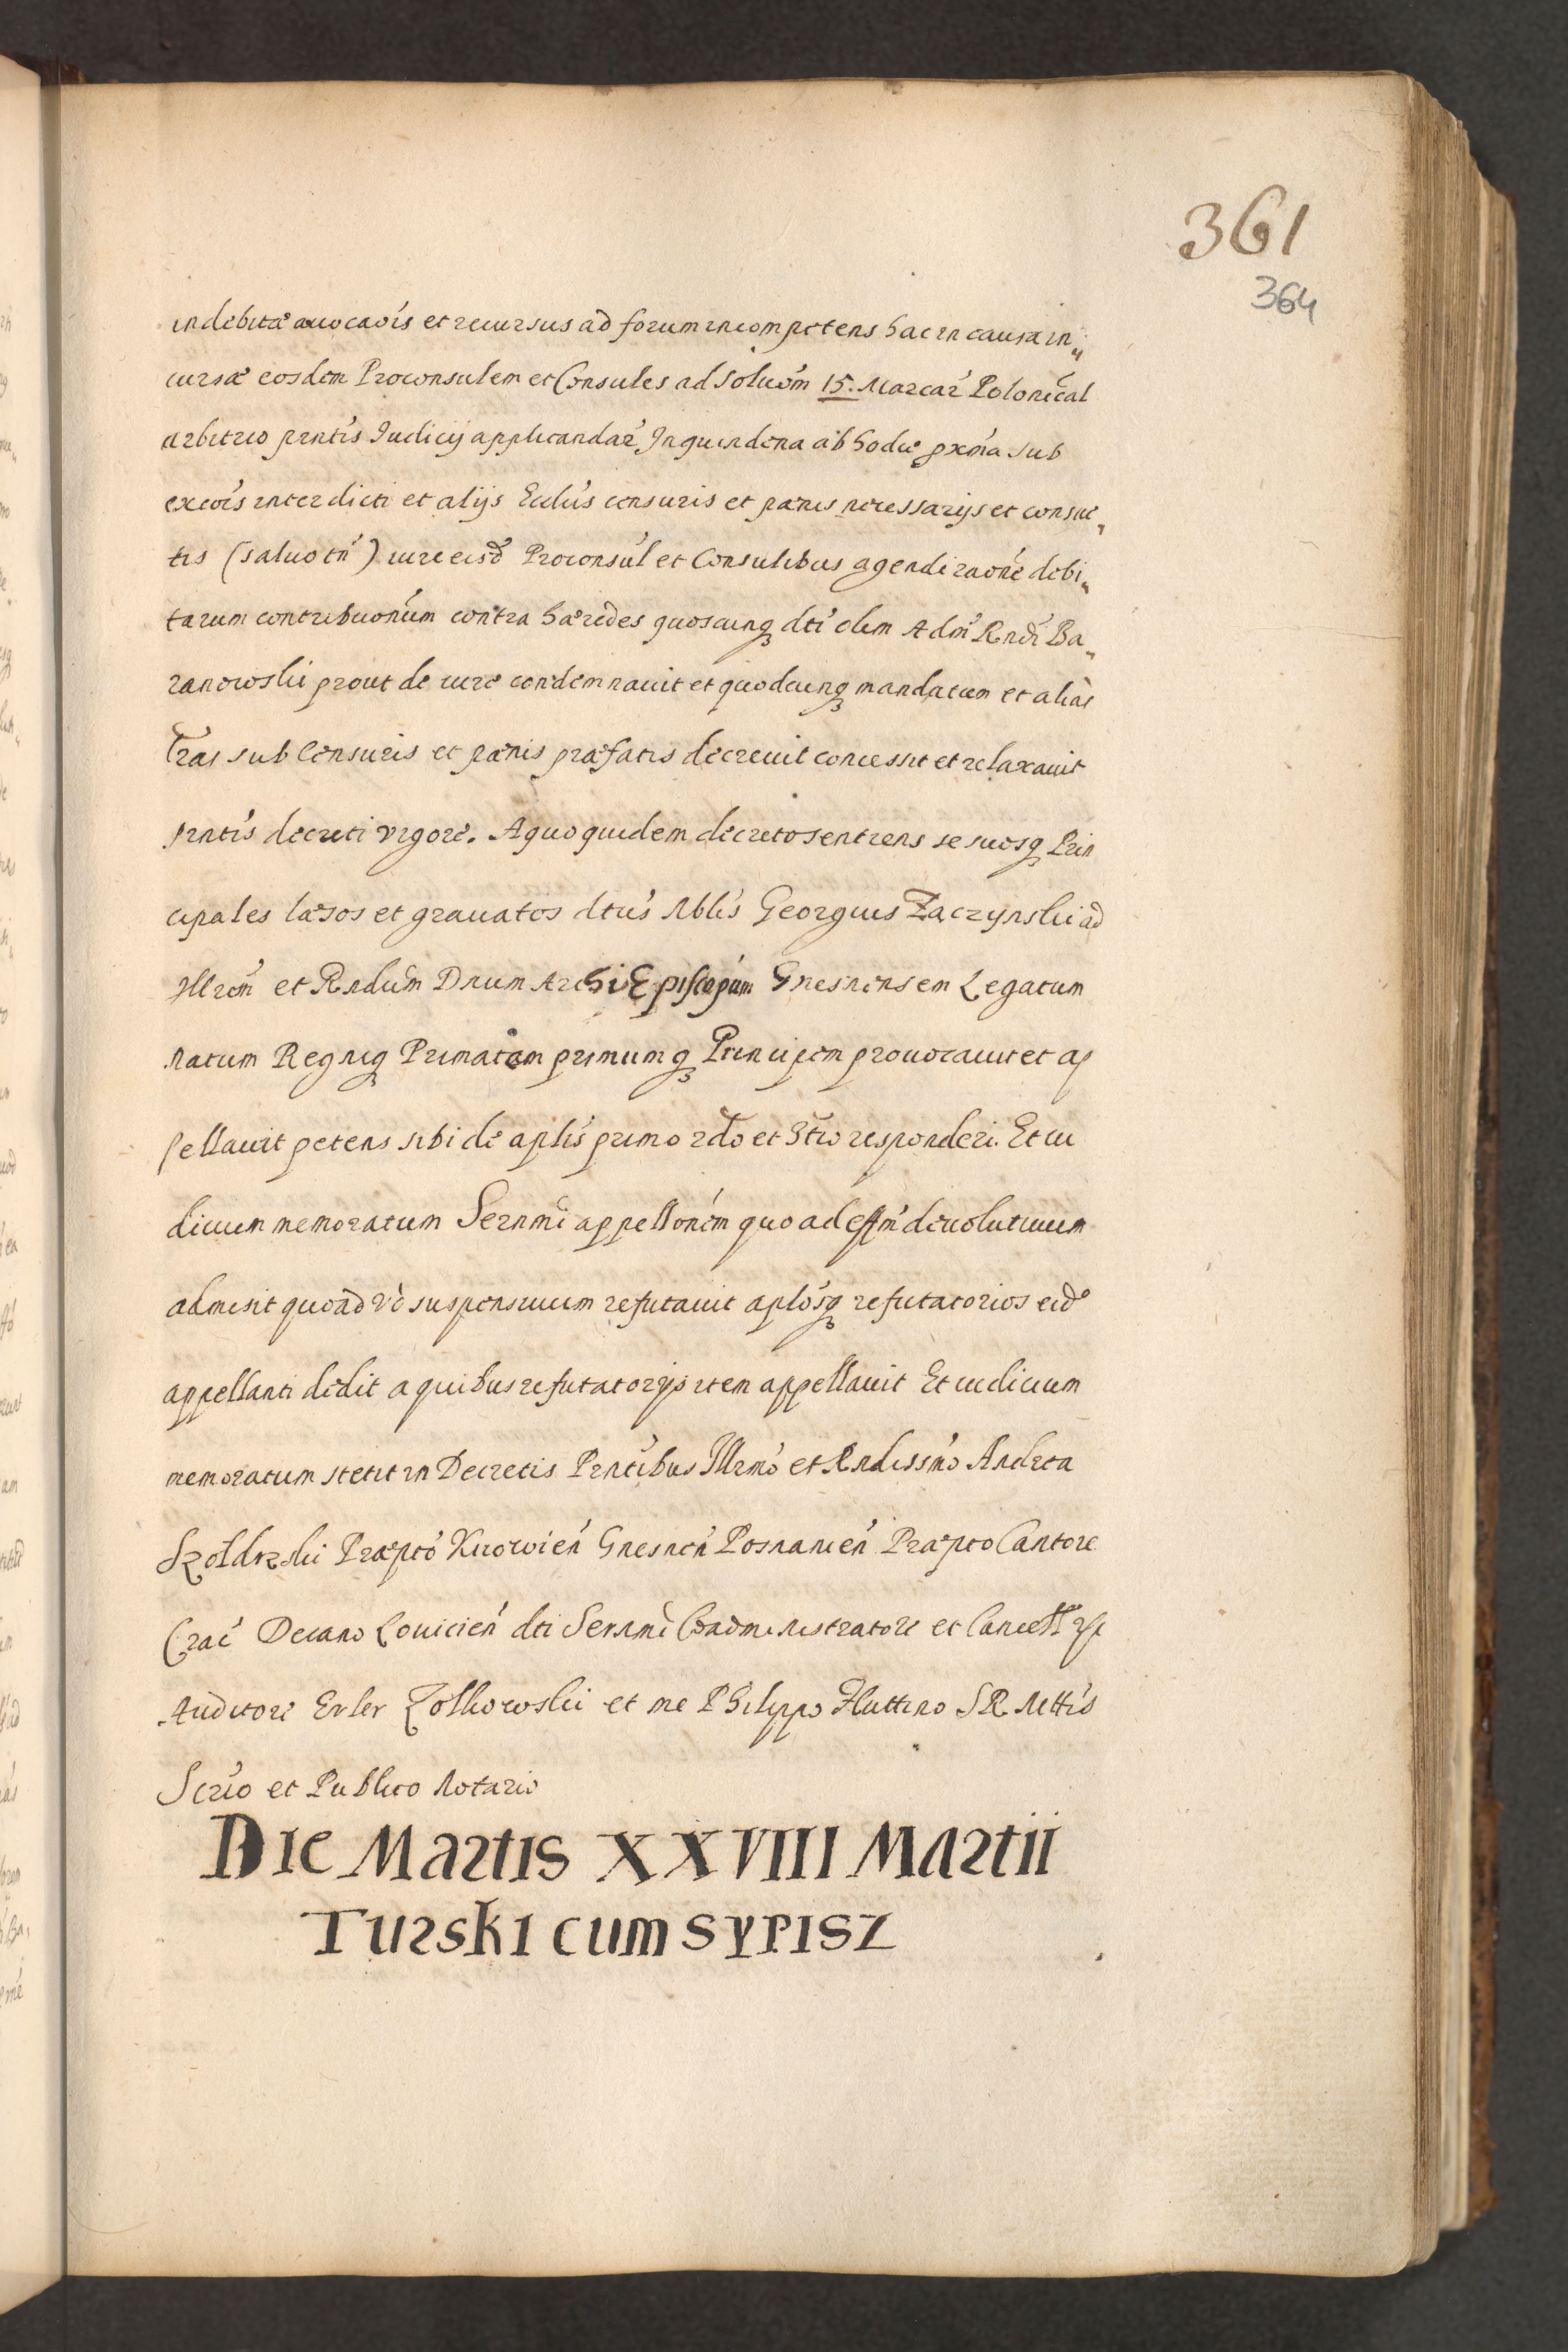 361
364
indebitæ auocaõis et recursus ad forum incompetens hac in causa in„
cursæ eosdem Proconsulem et Consules ad Soluõm 15. Marcar̃ Polonical
arbitrio pñtis Iudicij applicandar̃ In quindena ab hodie pxm̃a sub
excõis interdicti et alijs Ecclıs̃ censuris et pænis necessarijs et consue„
tis (saluo tñ) iure eisd̃ Proconsul̃ et Consulibus agendi raõne debi„
tarum contribuonũm contra hæredes quoscunq̃ dti olim Adm̃ Rndi Ba„
ranowski prout de iure condemnauit et quodcunq̃ mandatum et alias
Lr̃as sub Censuris et pænis præfatis decreuit concessit et relaxauit
pñtis decreti vigore. A quo quidem decreto sentiens se suosq̃ Prin
cipales læsos et grauatos dtus̃ Nblis̃ Georgius Zaczynski ad
Illrem̃ et Rndum̃ Dnum ArchiEpiscopum Gnesnensem Legatum
natum Regniq̃ Primatem primumq̃ Principem prouocauit et ap
pellauit petens sibi de aplis̃ primo 2do et 3tio responderi. Et iu
dicium memoratum Sernmi appellonem̃ quo ad effm̃ deuolutiuum
admisit quoad vo suspensiuum refutauit aplosq̃ refutatorios eid̃
appellanti dedit a quibus refutatorijs item appellauit Et iudicium
memoratum stetit in Decretis Pñtibus Illrmo et Rndissmo Andrea
Szołdrzski Præpto Kiiowien̄ Gnesnen̄ Posnanien̄ Præpto Cantore
Crac̄ Decano Louicien̄ dti Sernmi Coadministratore et Cancell
Auditore Erler Zołkowski et me Philippo Huttino SR Mttis
Scrio et Publico Notario
DIE MARTIS XXVIII MARTII
TURSKI CUM SYPISZ